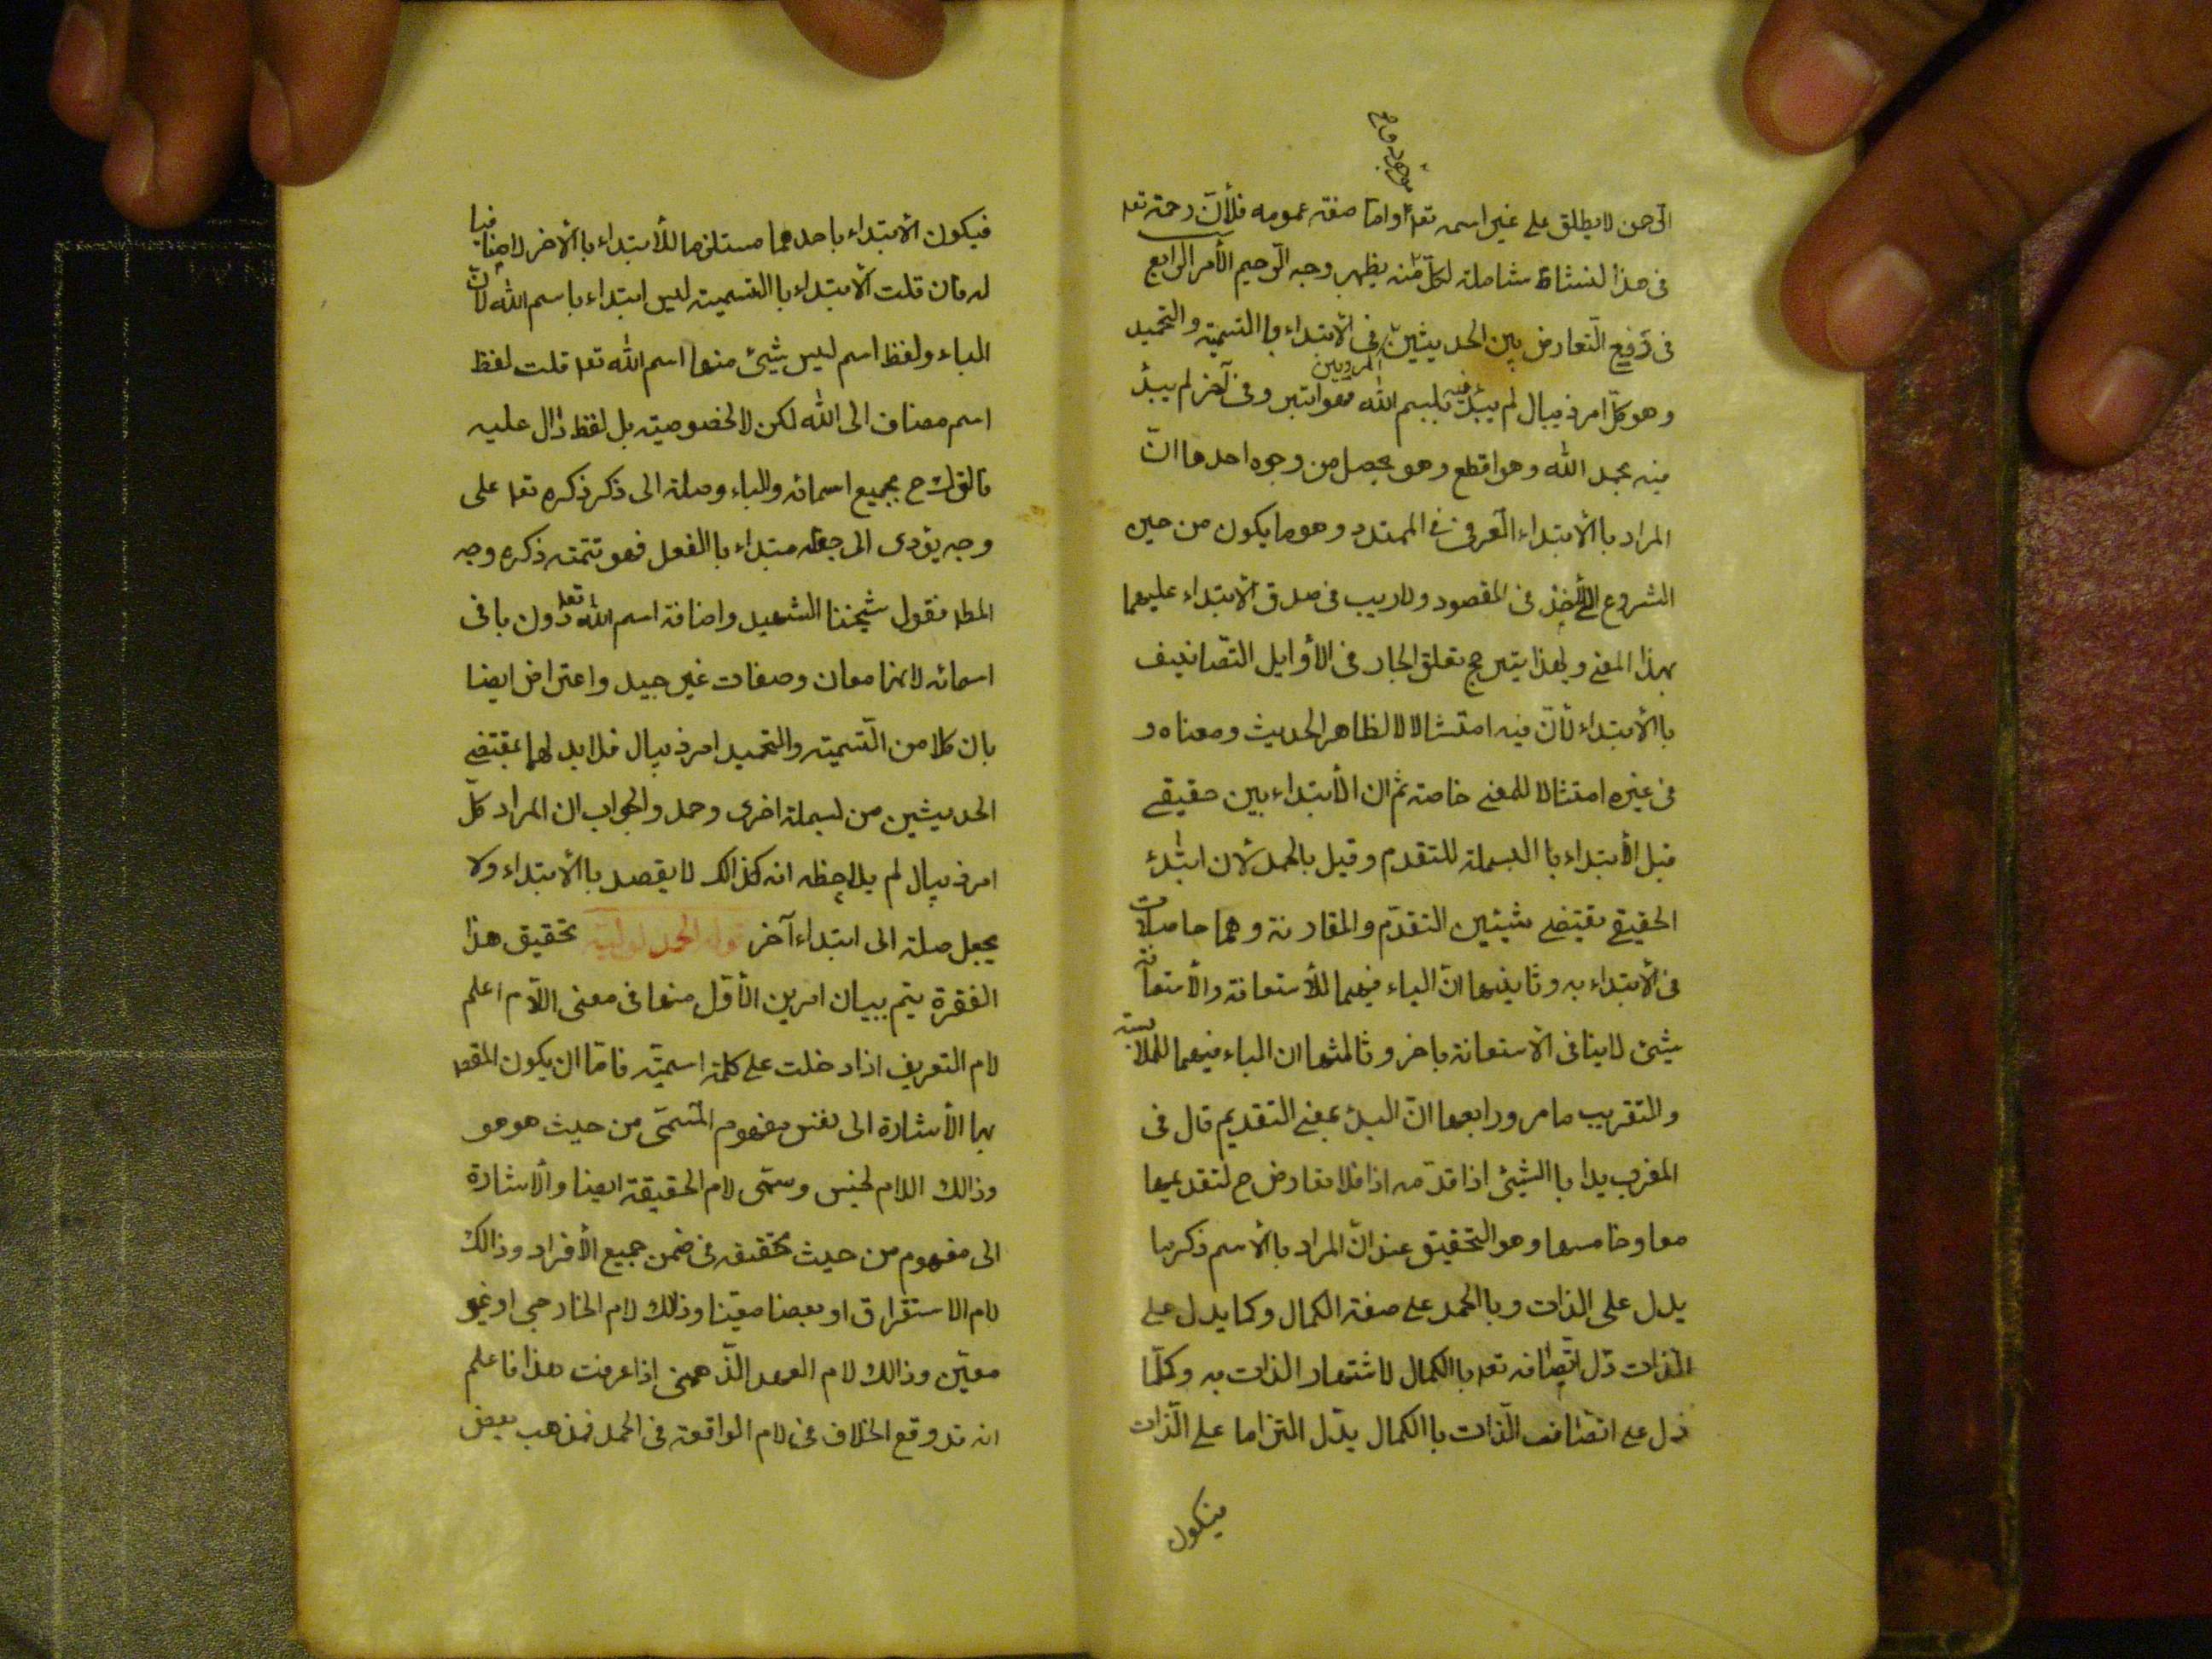 الرحمن لا يطلق على غير اسمه تعا واما صفته عمومه فلأنّ رحمته تعا
فى هذا لنشاة شاملة لكلّ منه يظهر وجه الرّحيم الأمر الرابع
فى رفع التّعارض بين الحديثين المرويين فى الأبتداء باالتسمية والتحميد
وهو كلّ امر ذيبال لم يبدٔ فيه ببسم الله فهو ابتر وفى آخر لم يبدٔ
فيه بحمد الله وهو اقطع وهو يحصل من وجوه احدها انّ
المراد باالأبتداء العرفى الممتد وهو ما يكون من حين
الشروع الى الأخذ فى المقصود ولا ريب فى صدق الأبتداء عليهما
بهذا المعنى ولهذا يترجح تعلق الجار فى الأوايل التّصانيف
باالأبتداء لأنّ فيه امتثالا لظاهر الحديث ومعناه و
فى غيره امتثالا للمعنى خاصة ثم ان الأبتداء بين حقيقى
قبل الأبتداء باالبسملة للتقدم وقيل بالحمد لأن ابتدٔ
الحقيقى يقتضى شيئين التقدّم والمقارنة وهما حاصلات
فى الأبتداء به وثانيها انّ الباء فيهما للأستعانة والأستعانة
بشئ لا ينافى الأستعانة باخر وثالثها ان الباء فيهما للملابسة
والتقريب ما مر ورابعها انّ البدٔ بمعنى التقديم قال فى
المغرب بدا باالشئ اذا قدّمه اذا فلا تعارض ح لتقديمها
معا وخامسها وهو التحقيق عند انّ المراد باالأسم ذكر ما
يدل على الذات وباالحمد على صفة الكمال وكما يدل على
الذات دّل اتّصافه تعا باالكمال لاشتهار الذات به وكلّما
دل على اتصاف الّذات باالكمال يدّل التزاما على الّذات
فيكون
فيكون الأبتداء باحدهما مستلزما للأبتداء باالأخر لا منافيا
له فان قلت الأبتداء باالتسمية ليس ابتداء باسم الله لأنّ
الباء ولفظ اسم ليس شيئ منها اسم الله تعا قلت لفظ
اسم مضاف الى الله لكن لا لخصوصيته بل لفظ دّال عليه
ح بجميع اسمائه والباء وصلة الى ذكر ذكره تعا على
وجه يؤدى الى جعله مبتداء باالفعل فهو تتمة ذكره وجه
المط فقول شيخنا الشهيد واضافة اسم الله تعا دون باقى
اسمائه لانها معان وصفات غير جيد واعترض ايضا
بان كلا من التّسمية والتحميد امر ذيبال فلا بد لهما بمقتضى
الحديثين من بسملة اخرى وحمد والجواب ان المراد كلّ
امر ذيبال لم يلاحظه انه كذالك لا يقصد باالأبتداء ولا
يجعل صلة الى ابتداء آخر قوله الحمد لوليّه تحقيق هذا
الفقرة يتم ببيان امرين الأوّل منها فى معنى اللّام اعلم
لام التعريف اذا دخلت على كلمة اسميّة فامّا ان يكون المقص
بها الأشارة الى نفس مفهوم المّسمّى من حيث هو هو
وذالك اللام لجنس وسمّى لام الحقيقة ايضا والأشارة
الى مفهوم من حيث تحققه فى ضمن جميع الأفراد وذالك
لام الاستغراق او بعضا معيّنا وذلك لام الخارجى او غير
معيّن وذالك لام العهد الذّهنى اذا عرفت هذا فاعلم
انه قد وقع الخلاف فى لام الواقعة فى الحمد فذهب بعض